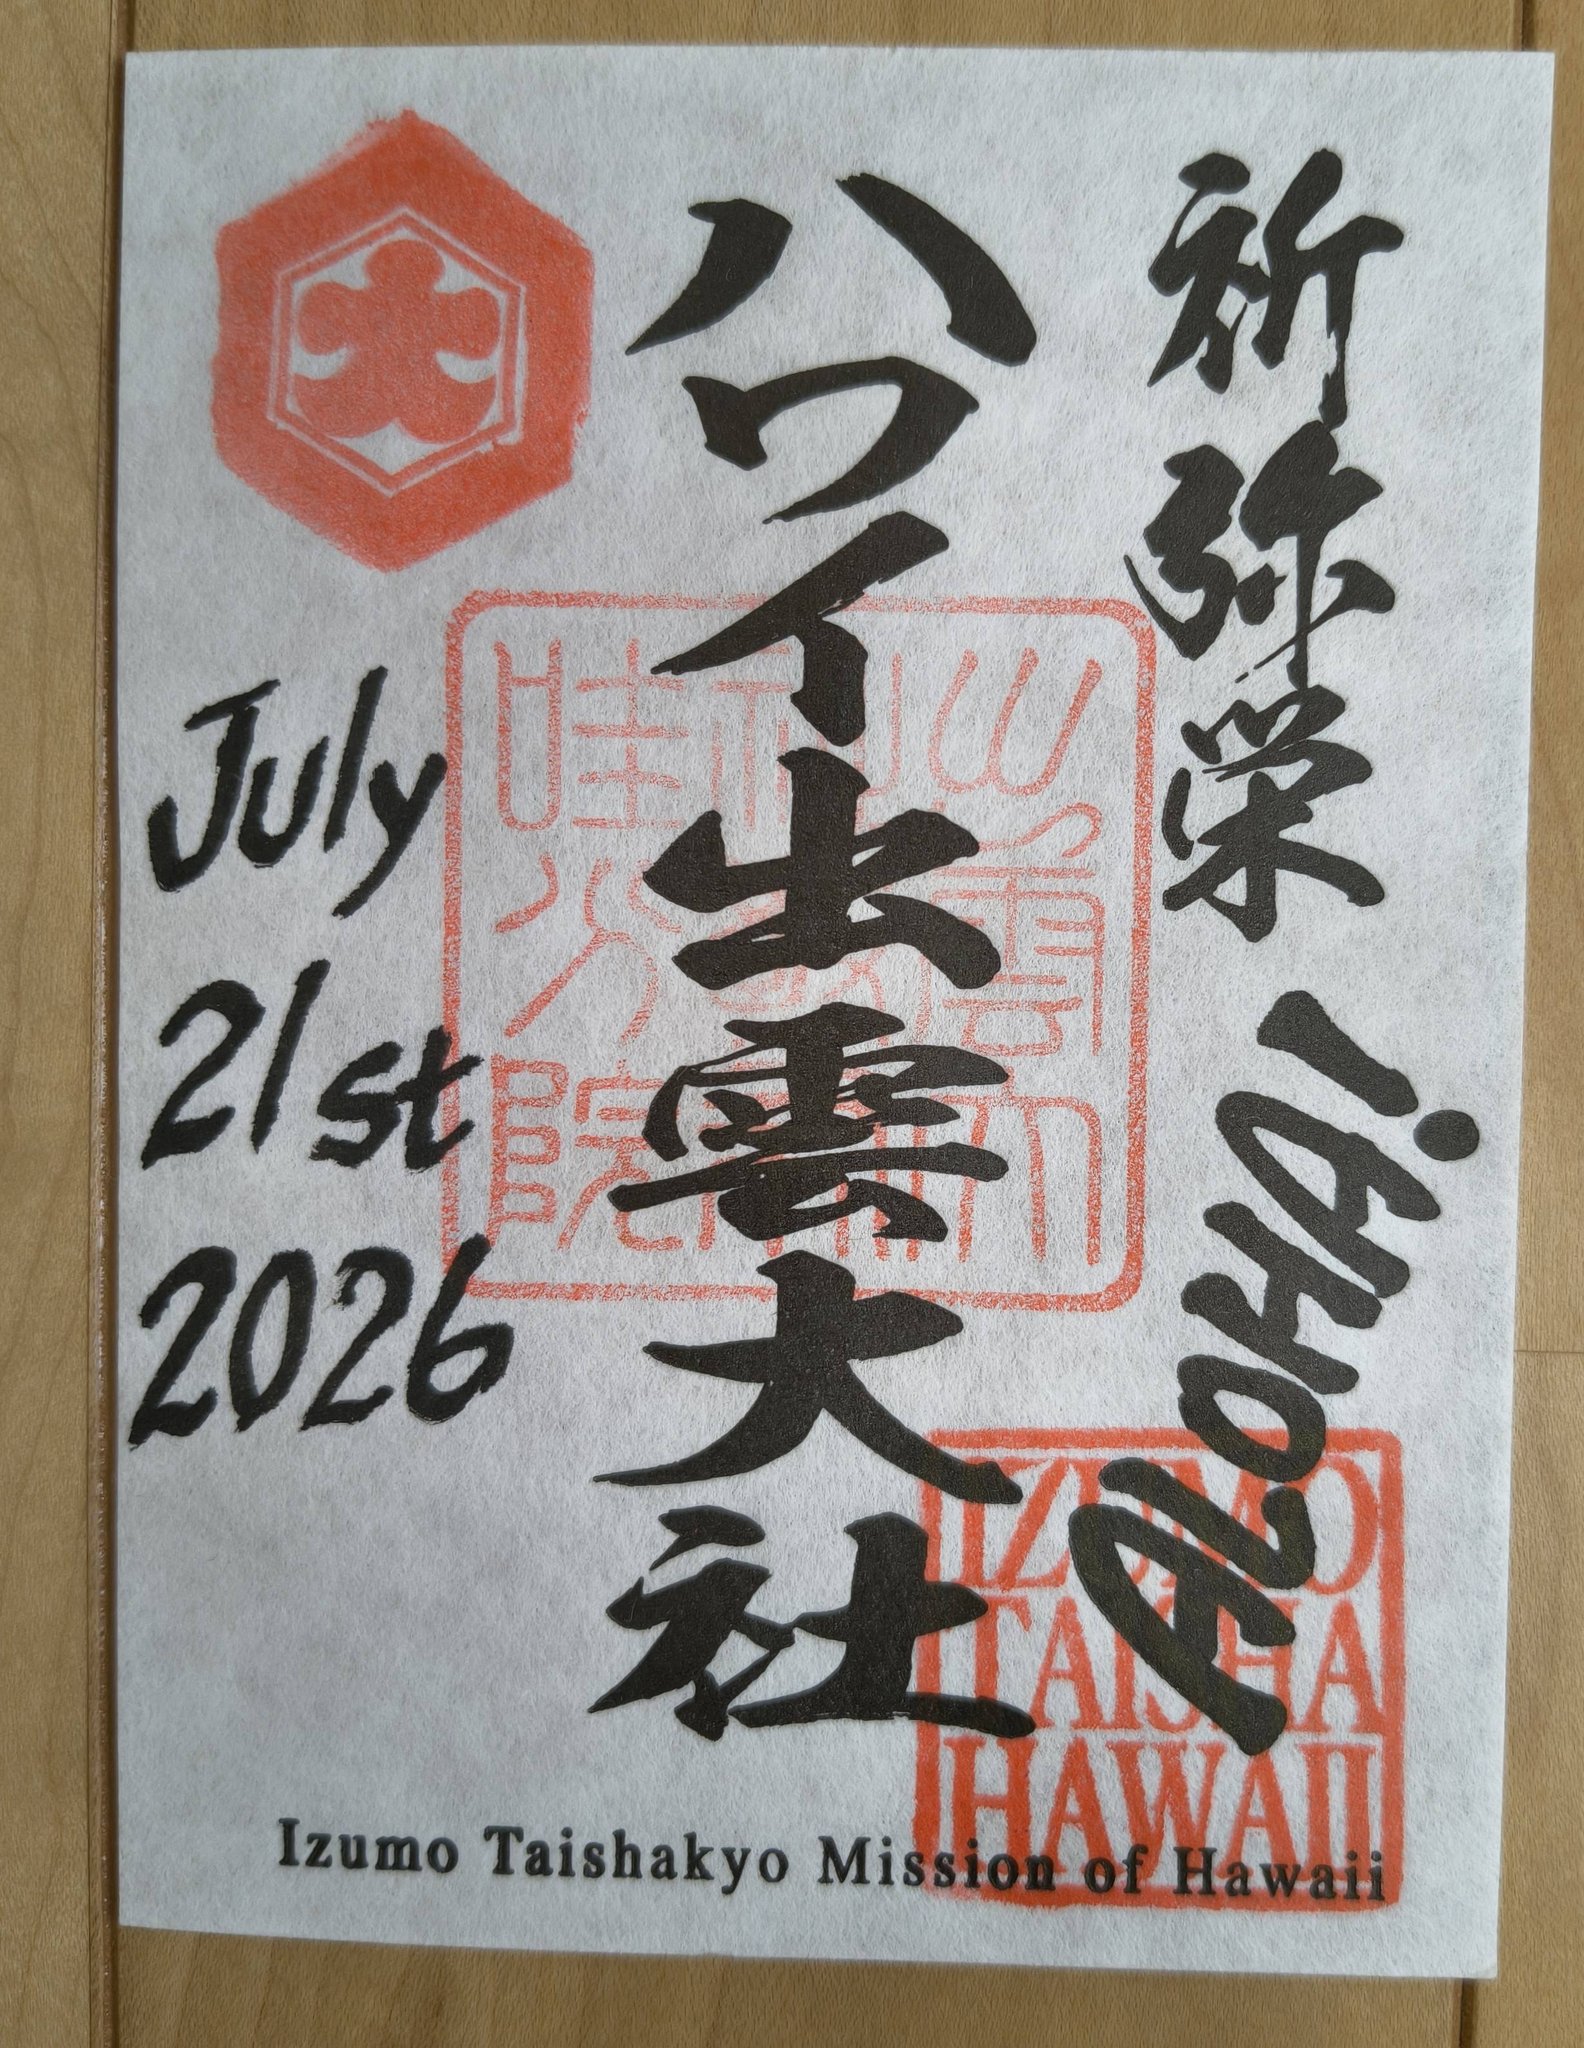 祈弥栄 ALOHA!
ハワイ出雲大社
July
21st
2026
IZUMO
TAISHA
HAWAII
Izumo Taishakyo Mission of Hawaii